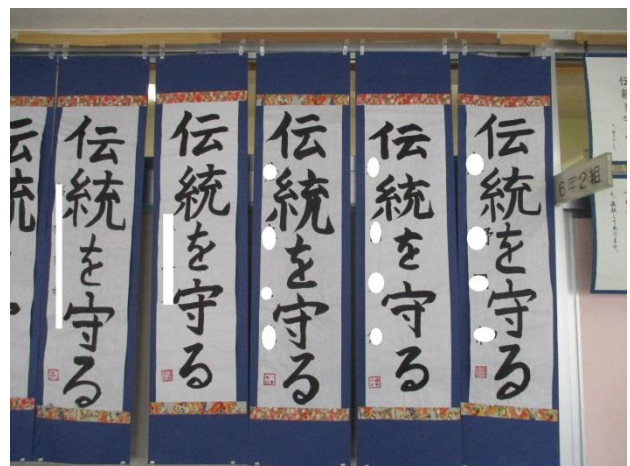 伝統を守る
伝統を守る
伝統を守る
伝統を守る
伝統を守る
伝統
6年2組
伝統を